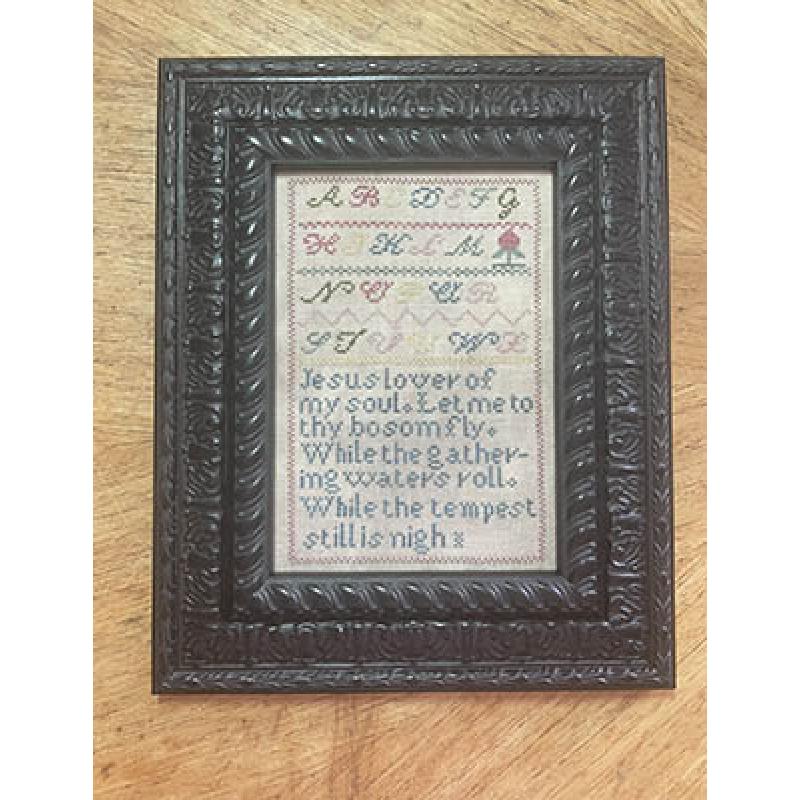 A B C D E F G
H I K L M
N O P Q R
S T W X
Jesus lover of
my soul. Let me to
thy bosom fly.
While the gather-
ing waters roll.
While the tempest
still is nigh